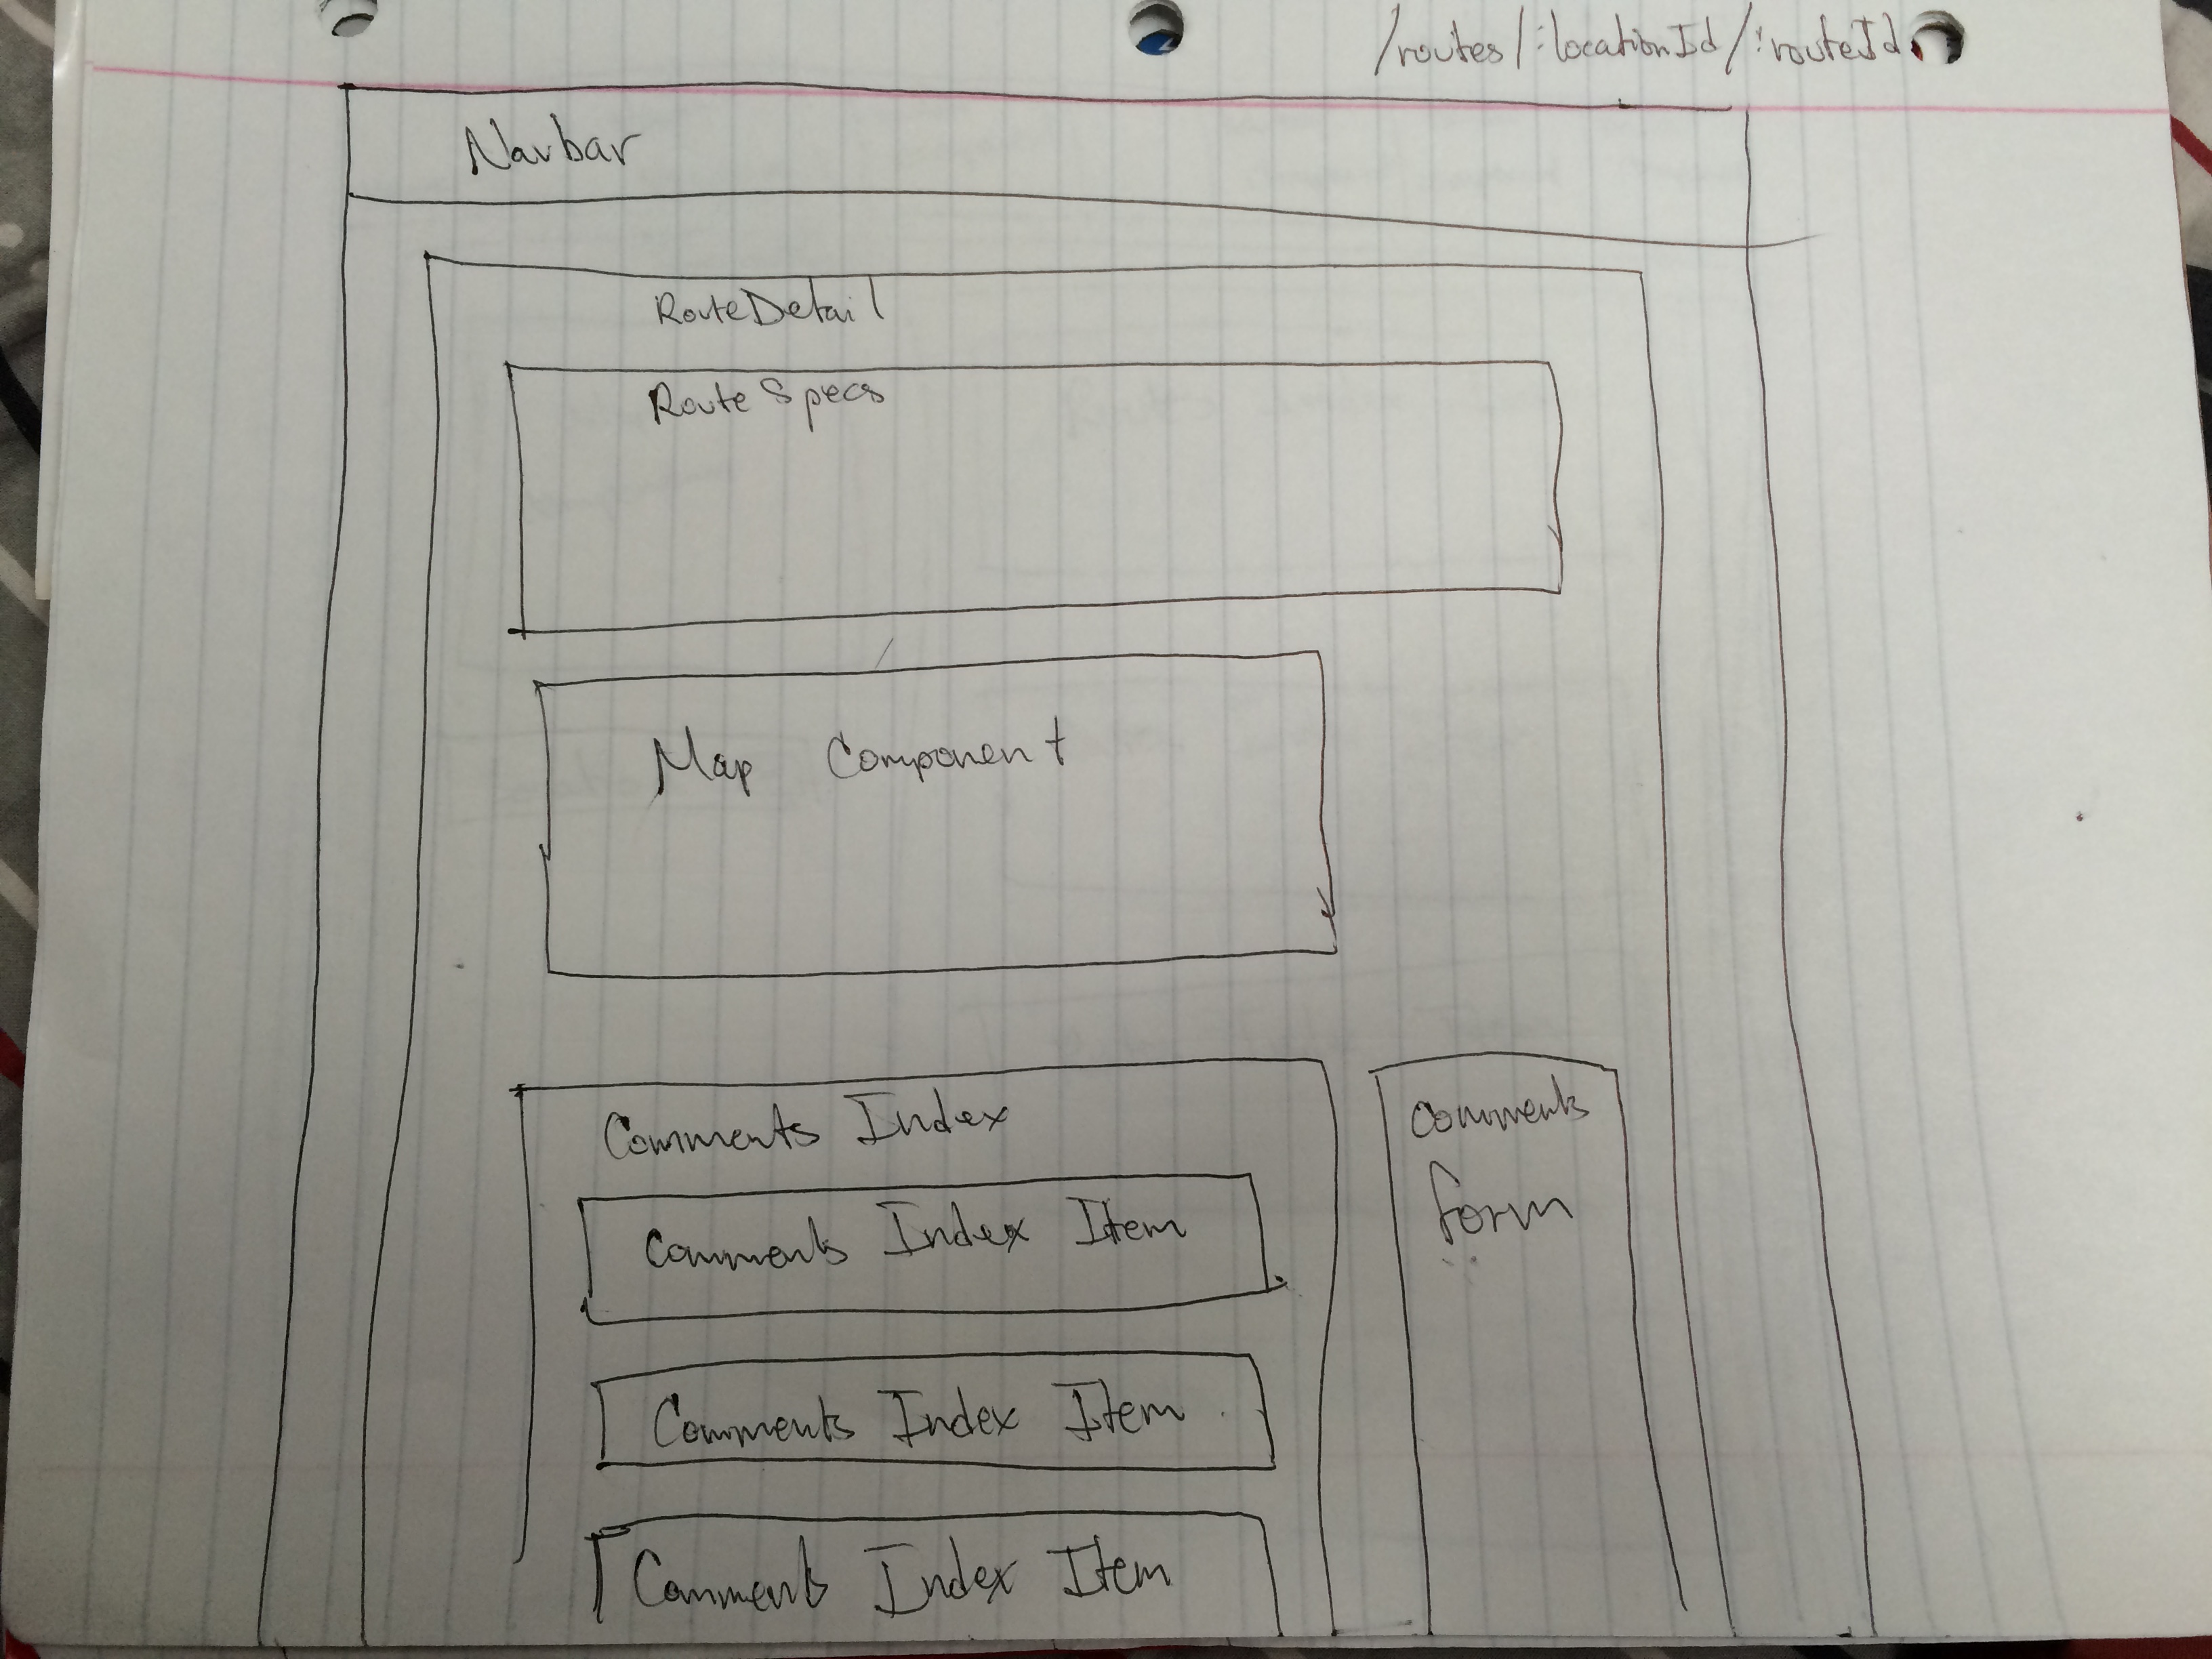 /routes/:locationId/:routeId
Navbar
RouteDetail
Route Specs
Map Component
Comments Index
Comments Index Item
Comments Index Item
Comments Index Item
Comments
form